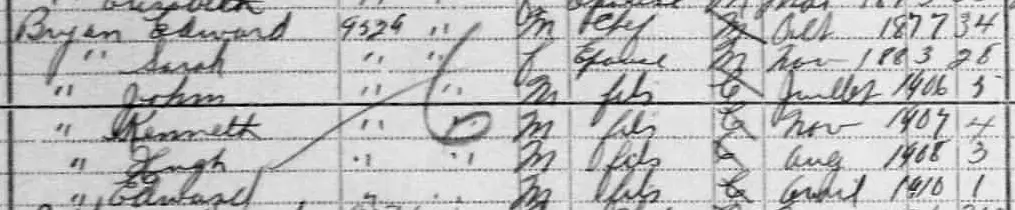 Bryan Edward 9526 " M Chef M Oct 1877 34
" Sarah " " f Epouse M Nov 1883 28
" John " " M fils C Juillet 1906 5
" Kenneth " M fils C Nov 1907 4
" Hugh " " M fils C Aug 1908 3
" Edward " " M fils C Avril 1910 1